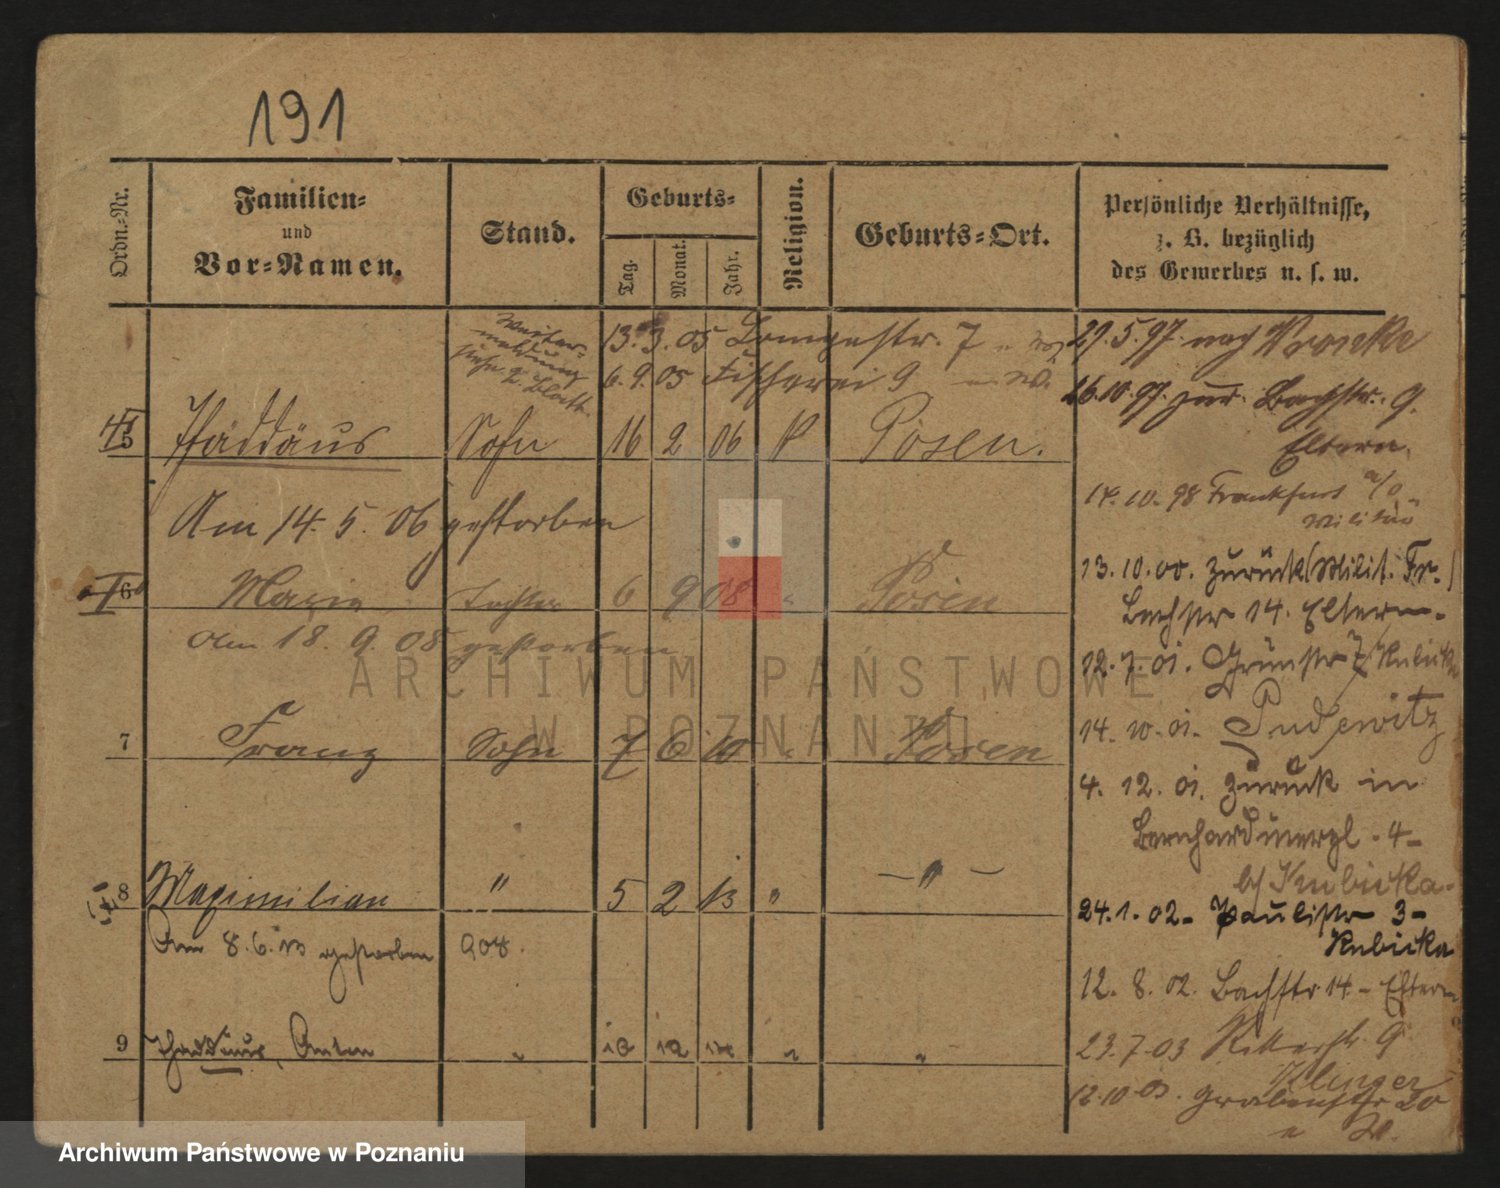 191
Ordn.-Nr.
Familien-
und
Vor-Namen.
Stand.
Geburts-
Tag.
Monat.
Jahr.
Religion.
Geburts-Ort.
Persönliche Verhältnisse,
z. B. bezüglich
des Gewerbes u. s. w.
Weiter-
meldung
siehe 2. Blatt
13. 3. 05 Longestr. 7
6. 9. 05 Fischerei 9 n. W.
5 Thaddäus Sohn 16 2 06 K Posen.
Am 14. 5. 06 gestorben
6 Maria Tochter 6 9 08 " Posen
Am 18. 9. 08 gestorben
7 Franz Sohn 7 6 10 " Posen
8 Maximilian " 5 2 13 " — " —
Am 8. 6. 13 gestorben 908.
9 Thaddäus, Anton " 18 12 14 " "
29. 5. 97. nach Wronke
26. 10. 97. zur. Bachstr. 9.
Eltern.
14. 10. 98 Frankfurt a/O
Militär
13. 10. 00. zurück (Milit. Fr.)
Bachstr 14. Eltern.
12. 7. 01. Grünstr 7 Kubicka
14. 10. 01. Pudewitz
4. 12. 01. zurück in
Bernhardinerpl. 4-
b/ Kubicka.
24. 1. 02- Paulistr 3-
Kubicka
12. 8. 02. Bachstr 14 - Eltern
23. 7. 03 Ritterstr. 9
Klinger
12. 10. 03. Grabenstr 20
n W.
ARCHIWUM PAŃSTWOWE
W POZNANIU
Archiwum Państwowe w Poznaniu